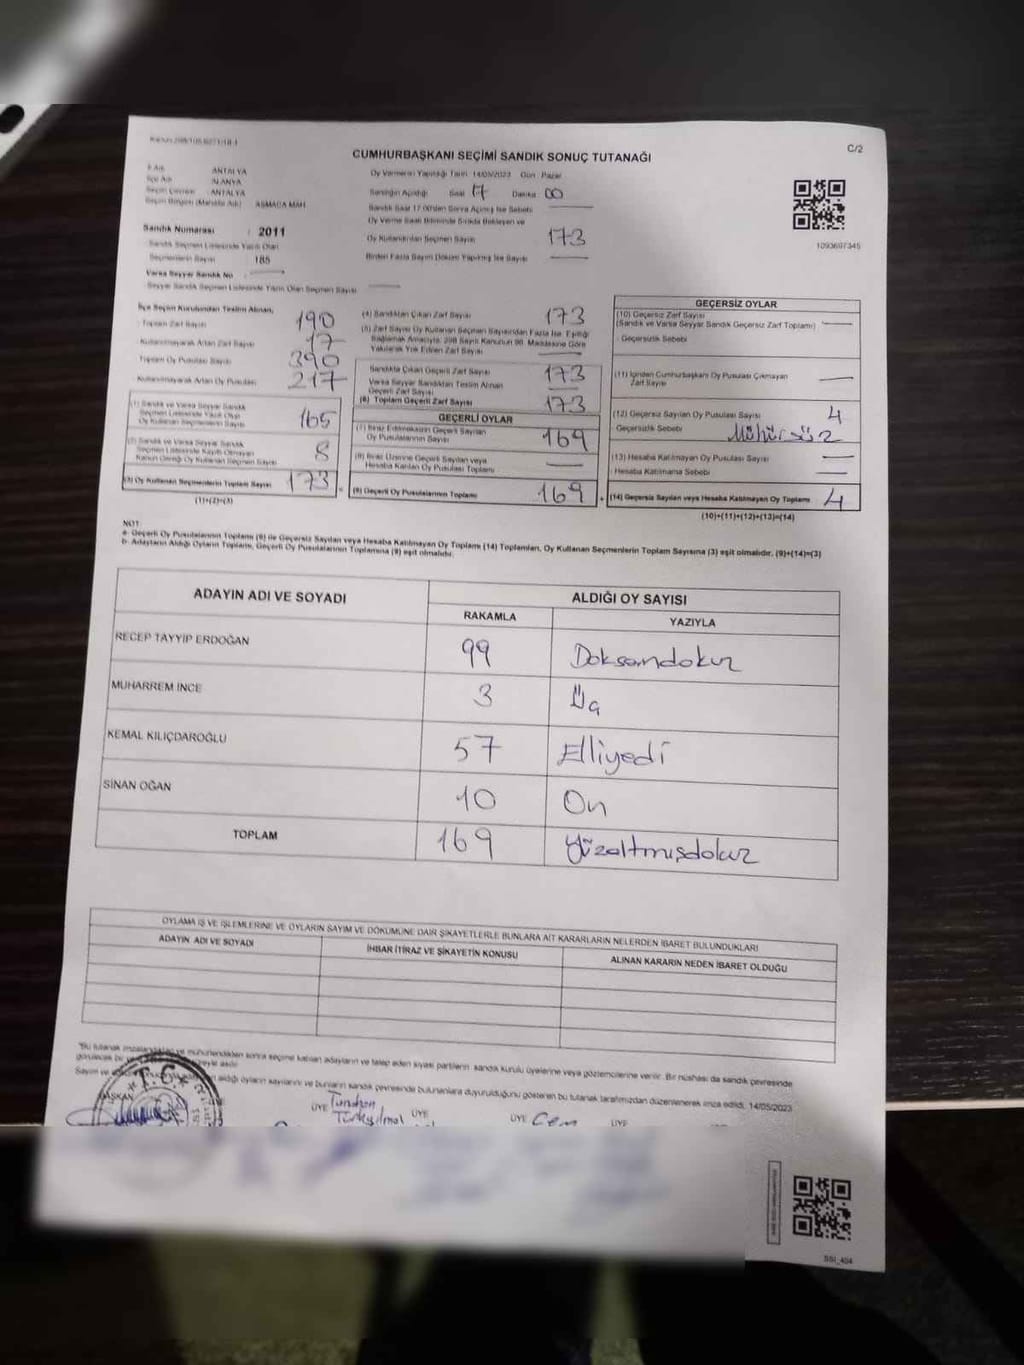 C/2
CUMHURBAŞKANI SEÇİMİ SANDIK SONUÇ TUTANAĞI
İl Adı ANTALYA
İlçe Adı ALANYA
Seçim Çevresi ANTALYA
Seçim Bölgesi (Mahalle Adı) ASMACA MAH.
Sandık Numarası : 2011
Sandık Seçmen Listesinde Yazılı Olan
Seçmenlerin Sayısı 185
Varsa Seyyar Sandık No
Seyyar Sandık Seçmen Listesinde Yazılı Olan Seçmen Sayısı
Oy Vermenin Yapıldığı Tarih 14/05/2023 Gün Pazar
Sandığın Açıldığı Saat 17 Dakika 00
Sandık Saat 17.00'den Sonra Açılmış İse Sebebi
Oy Verme Saati Bitiminde Sırada Bekleyen ve
Oy Kullandırılan Seçmen Sayısı 173
Birden Fazla Sayım Döküm Yapılmış İse Sayısı
1093697345
İlçe Seçim Kurulundan Teslim Alınan;
Toplam Zarf Sayısı 190
Kullanılmayarak Artan Zarf Sayısı 17
Toplam Oy Pusulası Sayısı 390
Kullanılmayarak Artan Oy Pusulası 217
(1) Sandık ve Varsa Seyyar Sandık
Seçmen Listesinde Yazılı Olup
Oy Kullanan Seçmenlerin Sayısı 165
(2) Sandık ve Varsa Seyyar Sandık
Seçmen Listesinde Kayıtlı Olmayan
Kanun Gereği Oy Kullanan Seçmen Sayısı 8
(3) Oy Kullanan Seçmenlerin Toplam Sayısı 173
(1)+(2)=(3)
(4) Sandıktan Çıkan Zarf Sayısı 173
(5) Zarf Sayısı Oy Kullanan Seçmen Sayısından Fazla İse, Eşitliği
Sağlamak Amacıyla, 298 Sayılı Kanunun 98. Maddesine Göre
Yakılarak Yok Edilen Zarf Sayısı
Sandıkta Çıkan Geçerli Zarf Sayısı 173
Varsa Seyyar Sandıktan Teslim Alınan
Geçerli Zarf Sayısı
(6) Toplam Geçerli Zarf Sayısı 173
GEÇERLİ OYLAR
(7) İtiraz Edilmeksizin Geçerli Sayılan
Oy Pusulalarının Sayısı 169
(8) İtiraz Üzerine Geçerli Sayılan veya
Hesaba Katılan Oy Pusulası Toplamı
(9) Geçerli Oy Pusulalarının Toplamı 169
GEÇERSİZ OYLAR
(10) Geçersiz Zarf Sayısı
(Sandık ve Varsa Seyyar Sandık Geçersiz Zarf Toplamı)
Geçersizlik Sebebi
(11) İçinden Cumhurbaşkanı Oy Pusulası Çıkmayan
Zarf Sayısı
(12) Geçersiz Sayılan Oy Pusulası Sayısı 4
Geçersizlik Sebebi Mühürsüz
(13) Hesaba Katılmayan Oy Pusulası Sayısı
Hesaba Katılmama Sebebi
(14) Geçersiz Sayılan veya Hesaba Katılmayan Oy Toplamı 4
(10)+(11)+(12)+(13)=(14)
NOT:
a- Geçerli Oy Pusulalarının Toplamı (9) ile Geçersiz Sayılan veya Hesaba Katılmayan Oy Toplamı (14) Toplamları, Oy Kullanan Seçmenlerin Toplam Sayısına (3) eşit olmalıdır. (9)+(14)=(3)
b- Adayların Aldığı Oyların Toplamı, Geçerli Oy Pusulalarının Toplamına (9) eşit olmalıdır.
ADAYIN ADI VE SOYADI ALDIĞI OY SAYISI
RAKAMLA YAZIYLA
RECEP TAYYİP ERDOĞAN 99 Doksandokuz
MUHARREM İNCE 3 Üç
KEMAL KILIÇDAROĞLU 57 Elliyedi
SİNAN OĞAN 10 On
TOPLAM 169 Yüzaltmışdokuz
OYLAMA İŞ VE İŞLEMLERİNE VE OYLARIN SAYIM VE DÖKÜMÜNE DAİR ŞİKAYETLERLE BUNLARA AİT KARARLARIN NELERDEN İBARET BULUNDUKLARI
ADAYIN ADI VE SOYADI İHBAR İTİRAZ VE ŞİKAYETİN KONUSU ALINAN KARARIN NEDEN İBARET OLDUĞU
"Bu tutanak imzalandıktan ve mühürlendikten sonra seçime katılan adayların ve talep eden siyasi partilerin sandık kurulu üyelerine veya gözlemcilerine verilir. Bir nüshası da sandık çevresinde
görülecek bir yere asılır.
Sayım ve aldığı oyların sayılarını ve bunların sandık çevresinde bulunanlara duyurulduğunu gösteren bu tutanak tarafımızdan düzenlenerek imza edildi. 14/05/2023
T.C.
BAŞKAN ÜYE Turahan ÜYE ÜYE Cem ÜYE
SSI_404